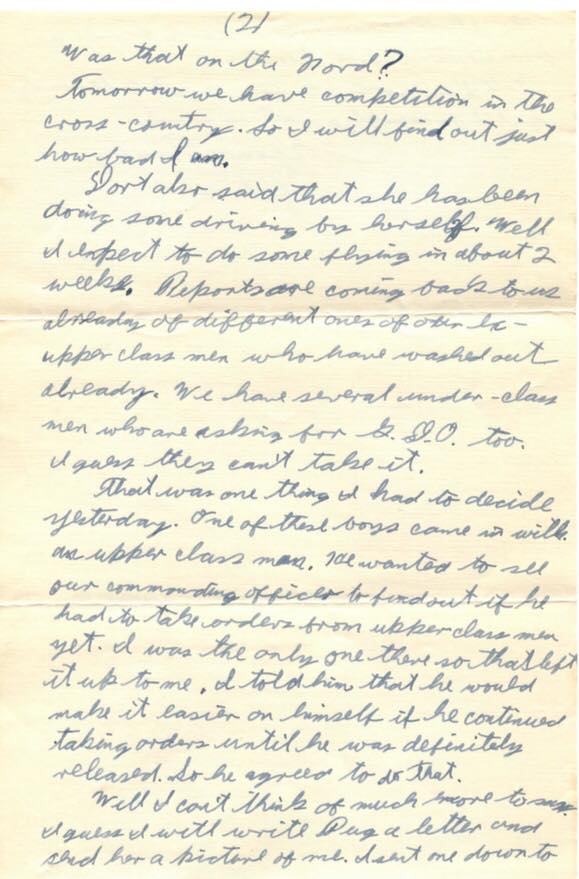 (2)
Was that on the Ford?
Tomorrow we have competition in the
cross-country. So I will find out just
how bad I am.
Dort also said that she has been
doing some driving by herself. Well
I expect to do some flying in about 2
weeks. Reports are coming back to us
already of different ones of our ex-
upper class men who have washed out
already. We have several under-class
men who are asking for G.D.O. too.
I guess they can't take it.
That was one thing I had to decide
yesterday. One of these boys came in with
an upper class man. He wanted to see
our commanding officer to find out if he
had to take orders from upper class men
yet. I was the only one there so that left
it up to me. I told him that he would
make it easier on himself if he continued
taking orders until he was definitely
released. So he agreed to do that.
Well I can't think of much more to say.
I guess I will write Pug a letter and
send her a picture of me. I sent one down to